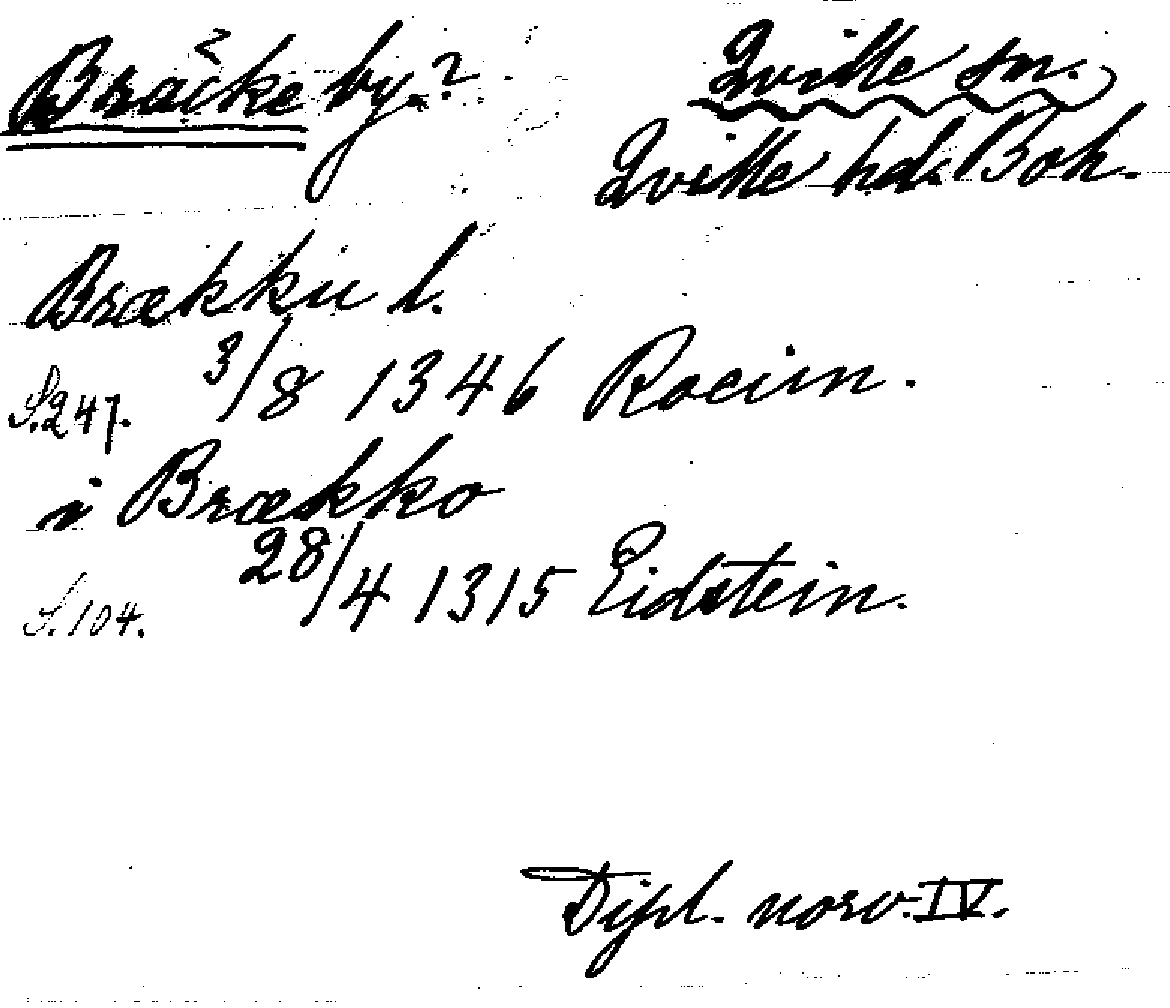 Bräcke by? Qville sn.
Qville hd. Boh.
Brækku l.
S.247. 3/8 1346 Rocim.
i Brækko
S.104. 28/4 1315 Eidstein.
Dipl. norv. IV.